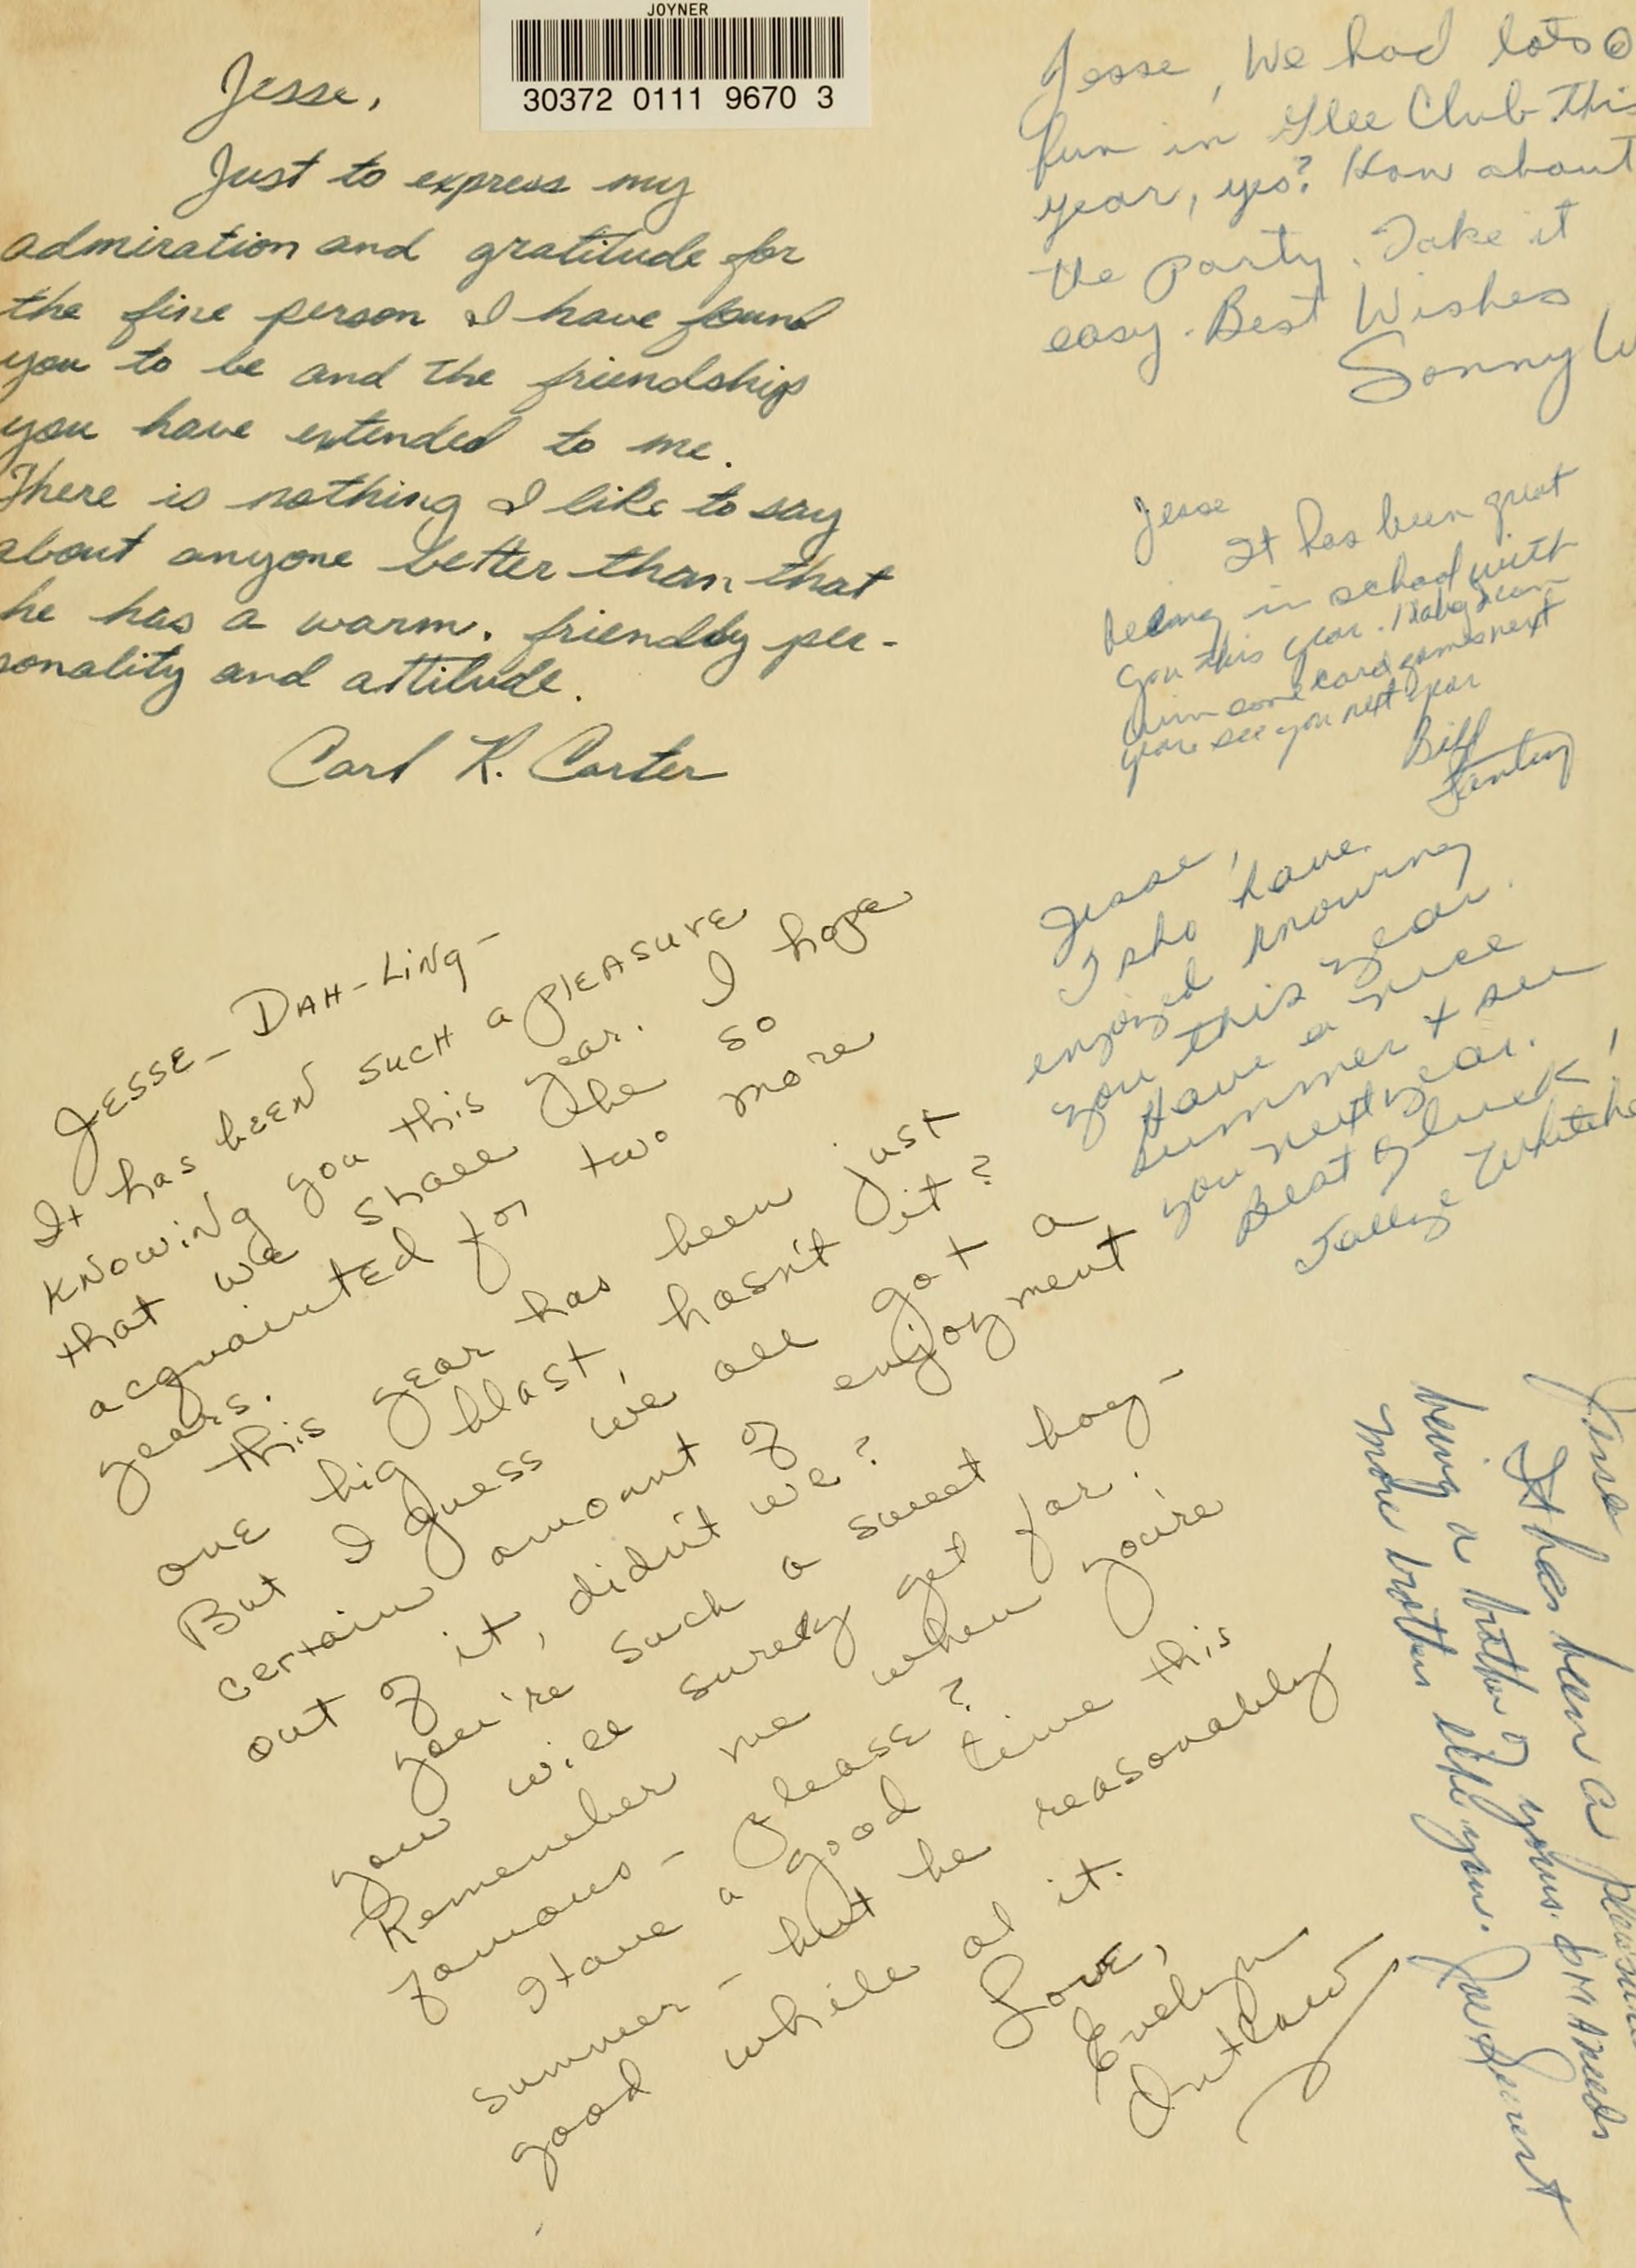 JOYNER
30372 0111 9670 3
Jesse,
Just to express my
admiration and gratitude for
the fine person I have found
you to be and the friendship
you have extended to me.
There is nothing I like to say
about anyone better than that
he has a warm, friendly per-
sonality and attitude.
Carl K. Carter
Jesse, We had lots o
fun in Glee Club this
year, yes? How about
the party. Take it
easy. Best Wishes
Sonny W
Jesse
It has been great
being in school with
you this year.
win some card games next
year see you next year
Bill
Jesse,
I sho have
enjoyed knowing
you this year.
Have a nice
summer & see
you next year.
Best of luck!
Jesse - Dah-Ling -
It has been such a pleasure
knowing you this year. I hope
that we shall be so
acquainted for two more
years.
This year has been just
one big blast, hasn't it?
But I guess we all got a
certain amount of enjoyment
out of it, didn't we?
You're such a sweet boy -
you will surely get far.
Remember me when you're
famous - please?
Have a good time this
summer - but be reasonably
good while at it.
Love,
Evelyn
Outlaw
Jesse
It has been a pleasure
being a brother of yours. needs
more brothers like you.